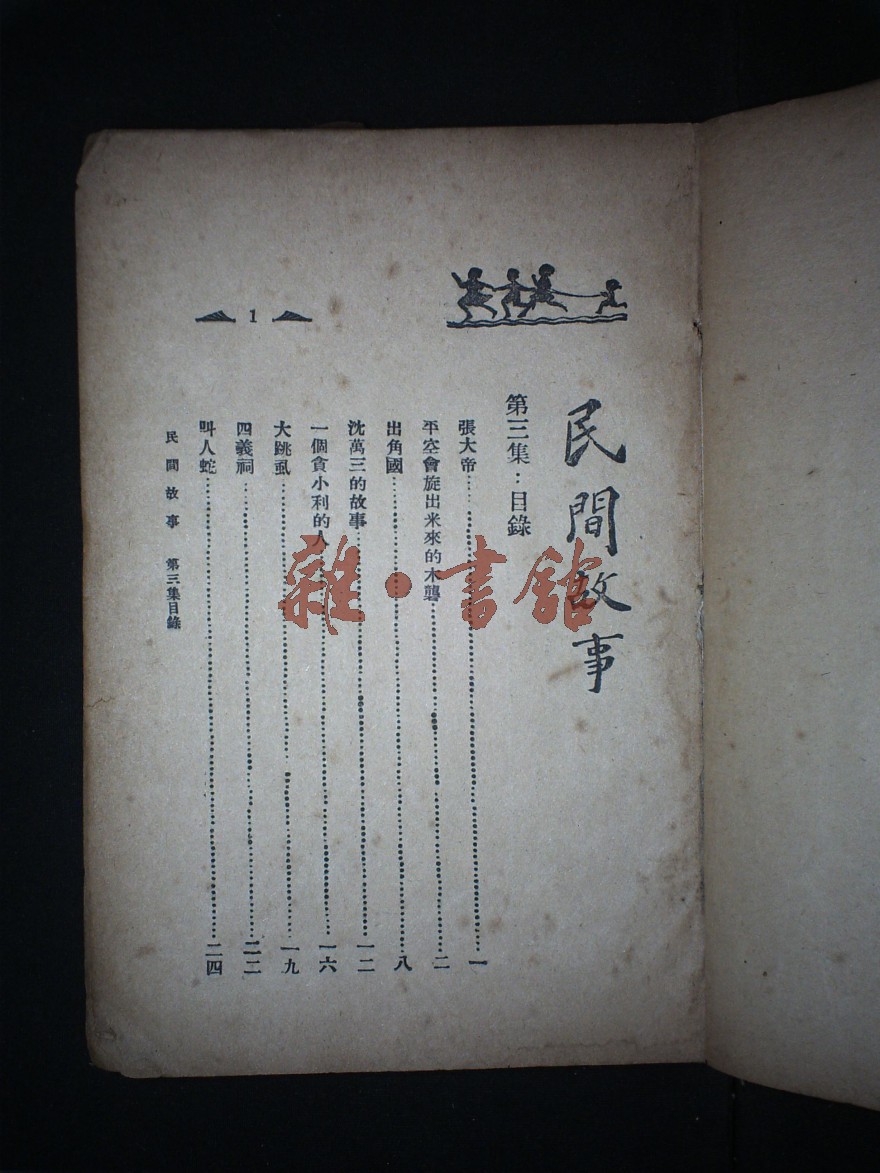 民間故事
第三集：目錄
張大帝……一
平空會旋出米來的木礱……二
出角國……八
沈萬三的故事……一二
一個貪小利的人……一六
大跳虱……一九
四義祠……二二
叫人蛇……二四
民間故事 第三集目錄
1
雜·書館